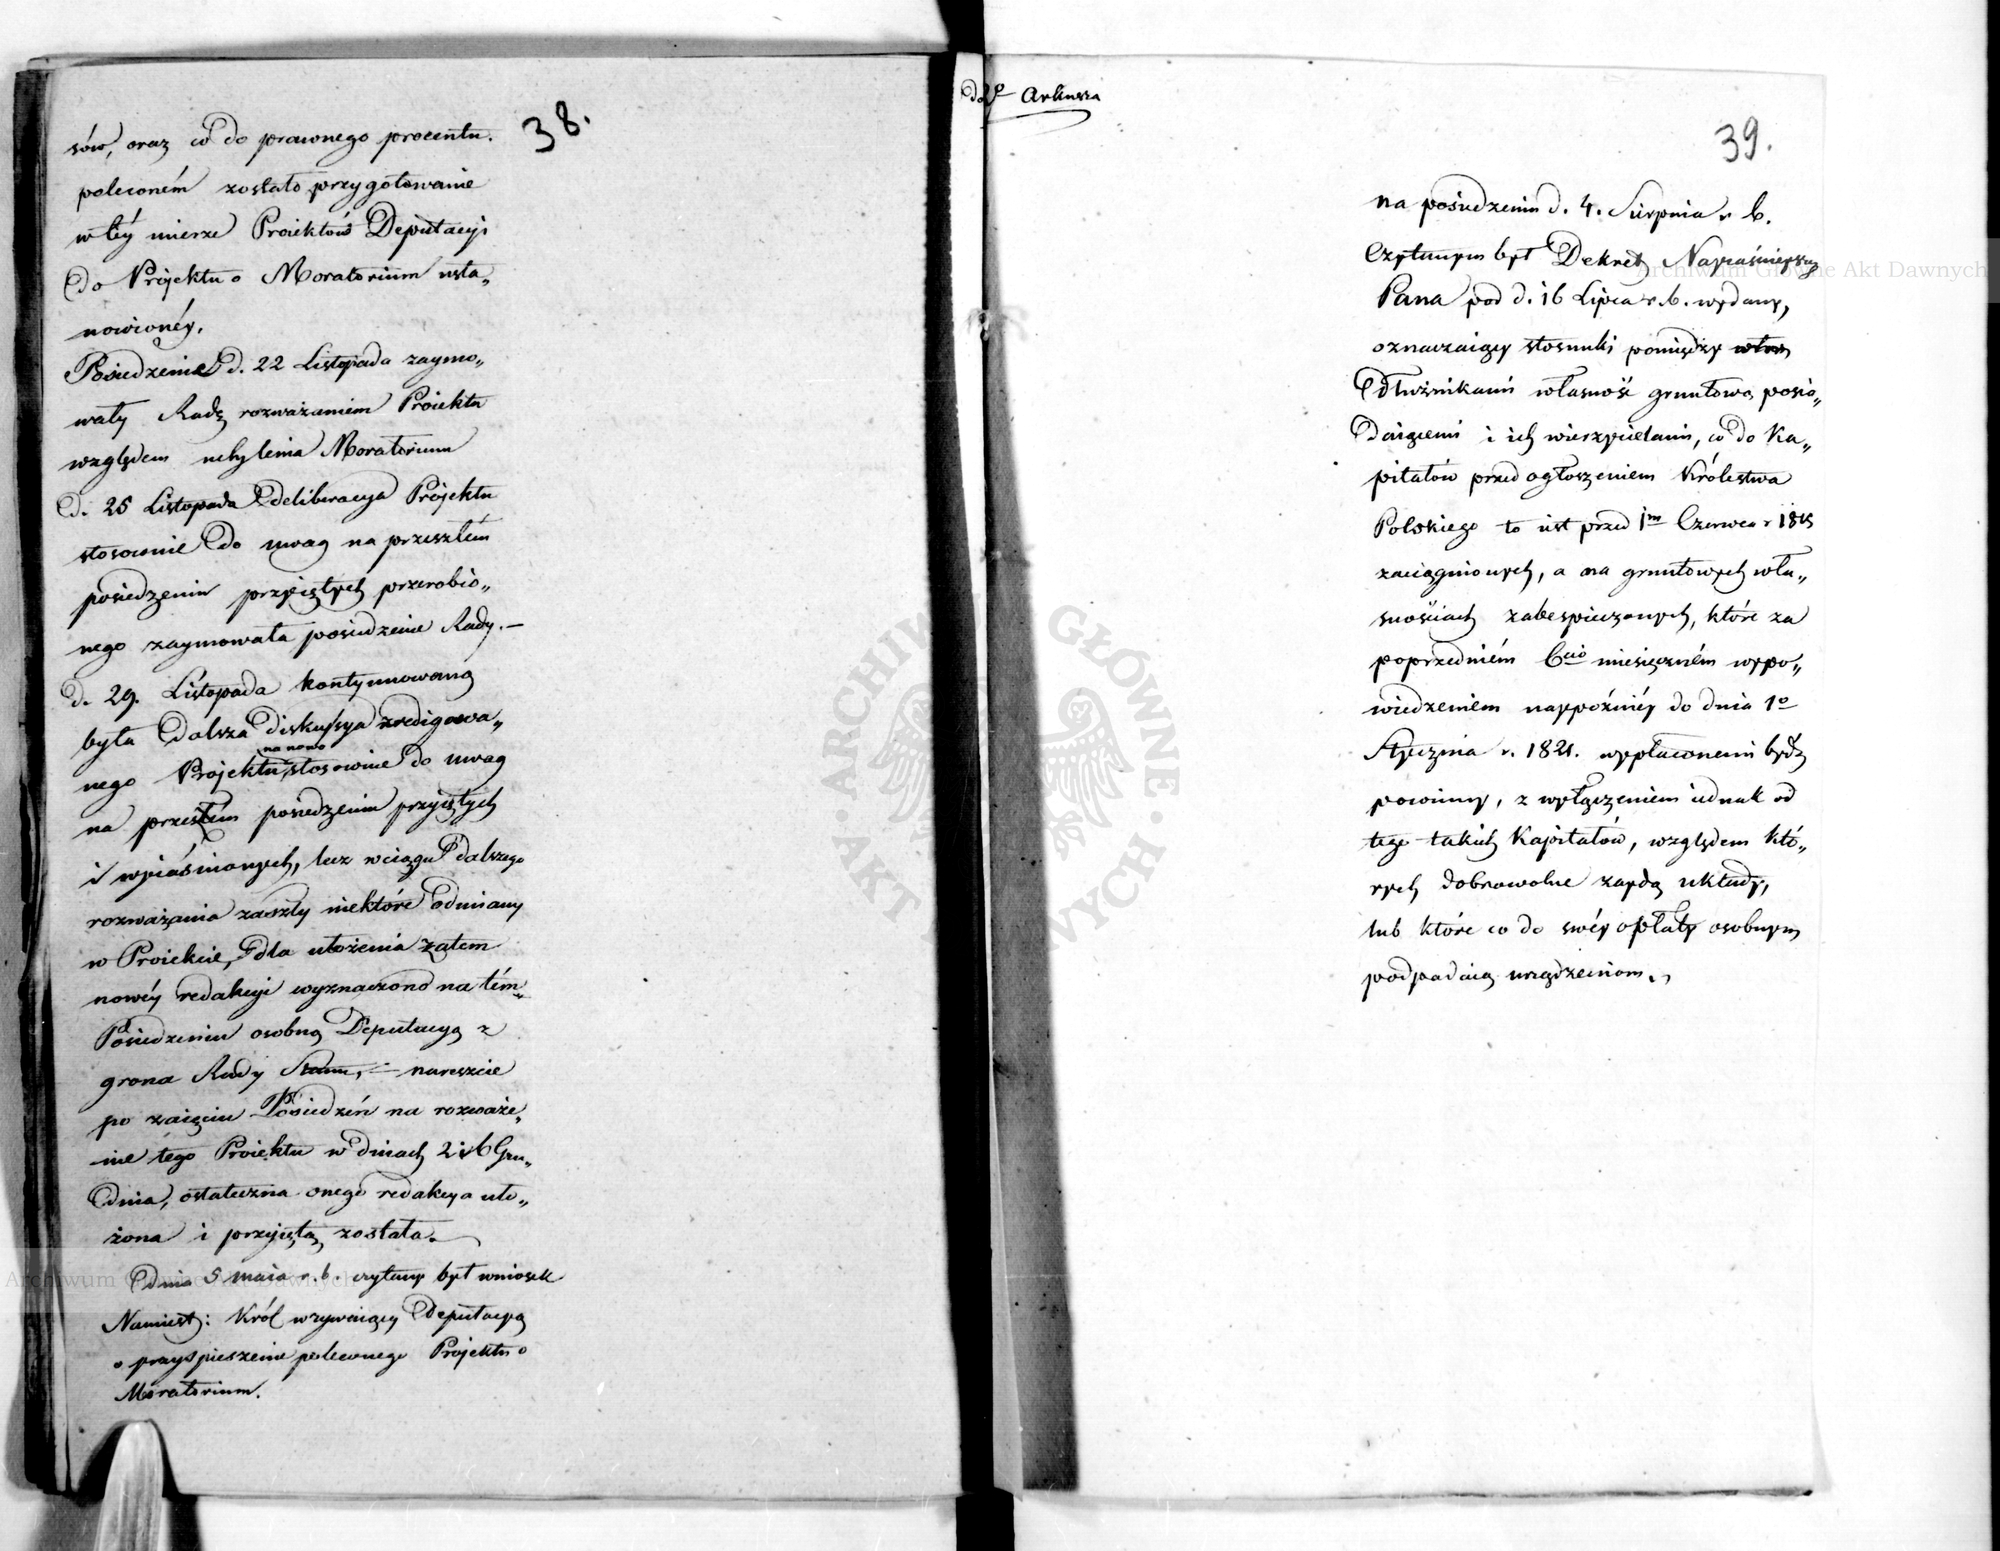 38.
sów, oraz co do prawnego procentu.
poleconém zostało przygotowanie
w téy mierze Proiektów Deputacyi
do Projektu o Moratorium usta„
nowionéy.
Posiedzenie d. 22 Listopada zaymo„
wały Radę rozważaniem Proiektu
względem uchylenia Moratorium
d. 25 Listopada deliberacya Projektu
stosownie do uwag na przeszłém
posiedzeniu przyiętych przerobio„
nego zaymowała posiedzenie Rady. —
d. 29. Listopada kontynuowaną
była dalsza diskussya zredigowa„
na nowo
nego Projektu stosownie do uwag
na przeszłém posiedzeniu przyiętych
i wyiaśnionych, lecz w ciągu dalszego
rozważania zaszły niektóre odmiany
w Proiekcie, dla ułożenia zatem
nowéy redakcyi wyznaczono na tém
Posiedzeniu osobną Deputacyą z
grona Rady Stanu, — nareszcie
po zaięciu Posiedzeń na rozważe„
nie tego Proiektu w dniach 2 i 6 Gru„
dnia, ostateczna onego redakcya uło„
żona i przyiętą została.
Dnia 5 maia r. b. czytany był wniosek
Namiest: Król wzywaiący Deputacyą
o przyspieszenie poleconego Projektu o
Moratorium.
Arkusza
39.
na posiedzeniu d. 4. Sierpnia r. b.
Czytanym był Dekret Nayiaśnieyszego
Pana pod d. 16 Lipca r. b. wydany,
oznaczaiący stosunki pomiędzy
dłużnikami własność gruntową posia„
daiącemi i ich wierzycielami, co do Ka„
pitałów przed ogłoszeniem Królestwa
Polskiego to iest przed 1m Czerwca r 1815
zaciągnionych, a na gruntowych wła„
snościach zabespieczonych, które za
poprzedniém 6cio miesięczném wypo„
wiedzeniem naypóźniéy do dnia 1o
Stycznia r. 1821. wypłaconemi bydź
powinny, z wyłączeniem iednak od
tego takich Kapitałów, względem któ„
rych dobrowolne zaydą układy,
lub które co do swéy opłaty osobnym
podpadaią urządzeniom.
Archiwum Główne Akt Dawnych
Archiwum Główne Akt Dawnych